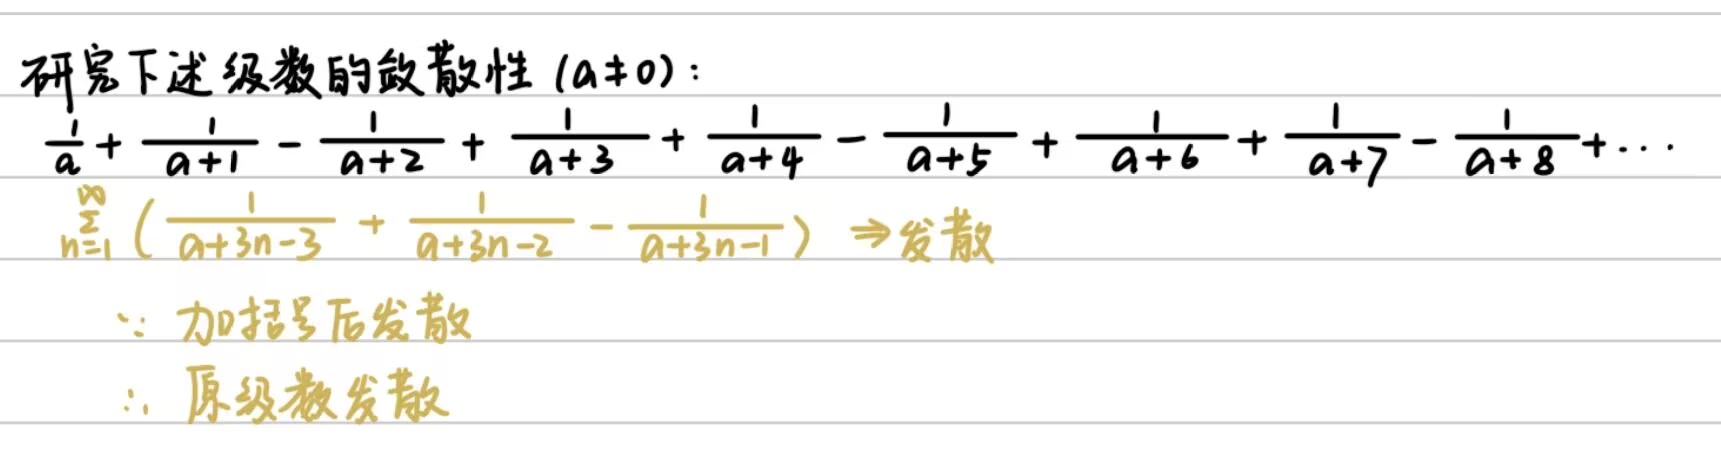 研究下述级数的敛散性 (a≠0):
1/a + 1/(a+1) - 1/(a+2) + 1/(a+3) + 1/(a+4) - 1/(a+5) + 1/(a+6) + 1/(a+7) - 1/(a+8) + ...
∑_{n=1}^{∞} ( 1/(a+3n-3) + 1/(a+3n-2) - 1/(a+3n-1) ) ⇒ 发散
∵ 加括号后发散
∴ 原级数发散